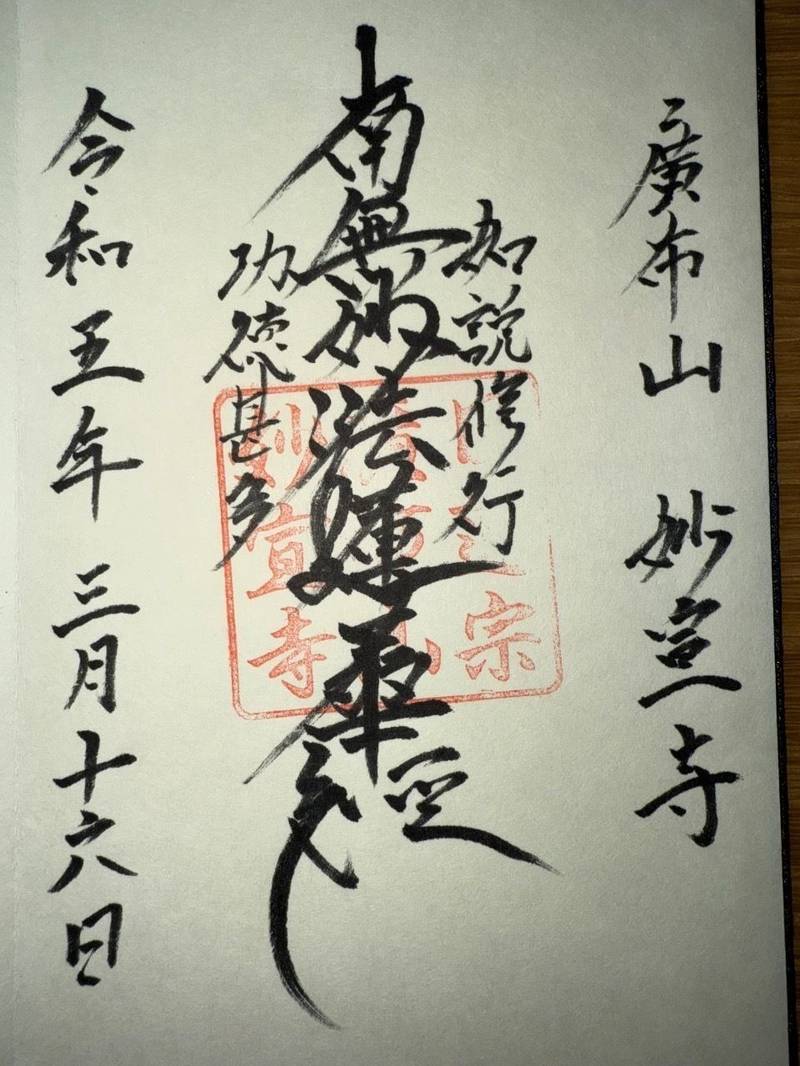 廣布山 妙宣寺
如説修行
南無妙法蓮華經
功徳甚多
令和五年 三月十六日
妙宣寺